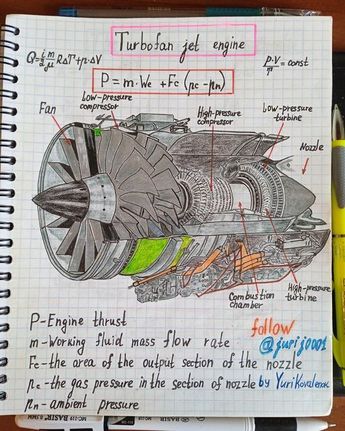 Turbofan jet engine
Q = i/2 m/μ RΔT + p·ΔV
P·V/T = const
P = m·We + Fc (pc - pn)
Fan
Low-pressure
compressor
High-pressure
compressor
Low-pressure
turbine
Nozzle
Combustion
chamber
High-pressure
turbine
P-Engine thrust
m-Working fluid mass flow rate
follow
@jurij0001
Fc-the area of the output section of the nozzle
pc-the gas pressure in the section of nozzle
by Yuri Kovalenok
pn-ambient pressure